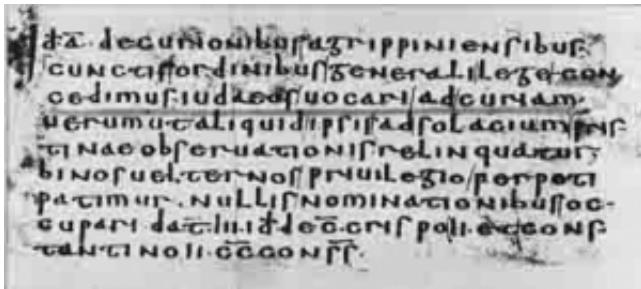 id̄ā· decurionibusagrippiniensibus·
cunctisordinibusgeneralilegecon
cedimus·iudaeosuocariadcuriam·
uerumutaliquidipsisadsolaciumpris
tinaeobseruationisrelinquatur·
binosuel·ternospriuilegio/perpeti
patimur·nullisnominationibusoc-
cupari dat̄·iii id̄ dec̄·crispoii·etcons
tantinoii·c̄c̄cons̄s̄·